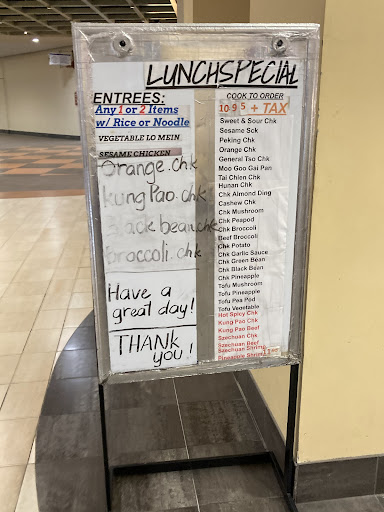 LUNCHSPECIAL
ENTREES:
Any 1 or 2 Items
w/ Rice or Noodle
VEGETABLE LO MEIN
SESAME CHICKEN
Orange.chk
kung Pao.chk
Black bean.chk
broccoli.chk
Have a
great day!
THANK
you!
COOK TO ORDER
10.95 + TAX
Sweet & Sour Chk
Sesame Sck
Peking Chk
Orange Chk
General Tso Chk
Moo Goo Gai Pan
Tai Chien Chk
Hunan Chk
Chk Almond Ding
Cashew Chk
Chk Mushroom
Chk Peapod
Chk Broccoli
Beef Broccoli
Chk Potato
Chk Garlic Sauce
Chk Green Bean
Chk Black Bean
Chk Pineapple
Tofu Mushroom
Tofu Pineapple
Tofu Pea Pod
Tofu Vegetable
Hot Spicy Chk
Kung Pao Chk
Kung Pao Beef
Szechuan Chk
Szechuan Beef
Szechuan Shrimp
Pineapple Shrimp